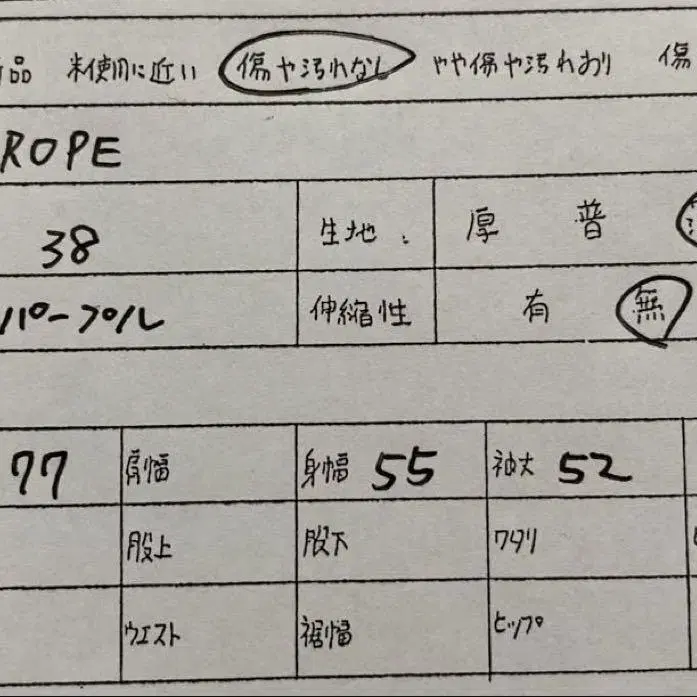 品 未使用に近い 傷や汚れなし やや傷や汚れあり 傷
ROPE
38 生地. 厚 普
パープル 伸縮性 有 無
77 肩幅 身幅 55 袖丈 52
股上 股下 ワタリ
ウエスト 裾幅 ヒップ